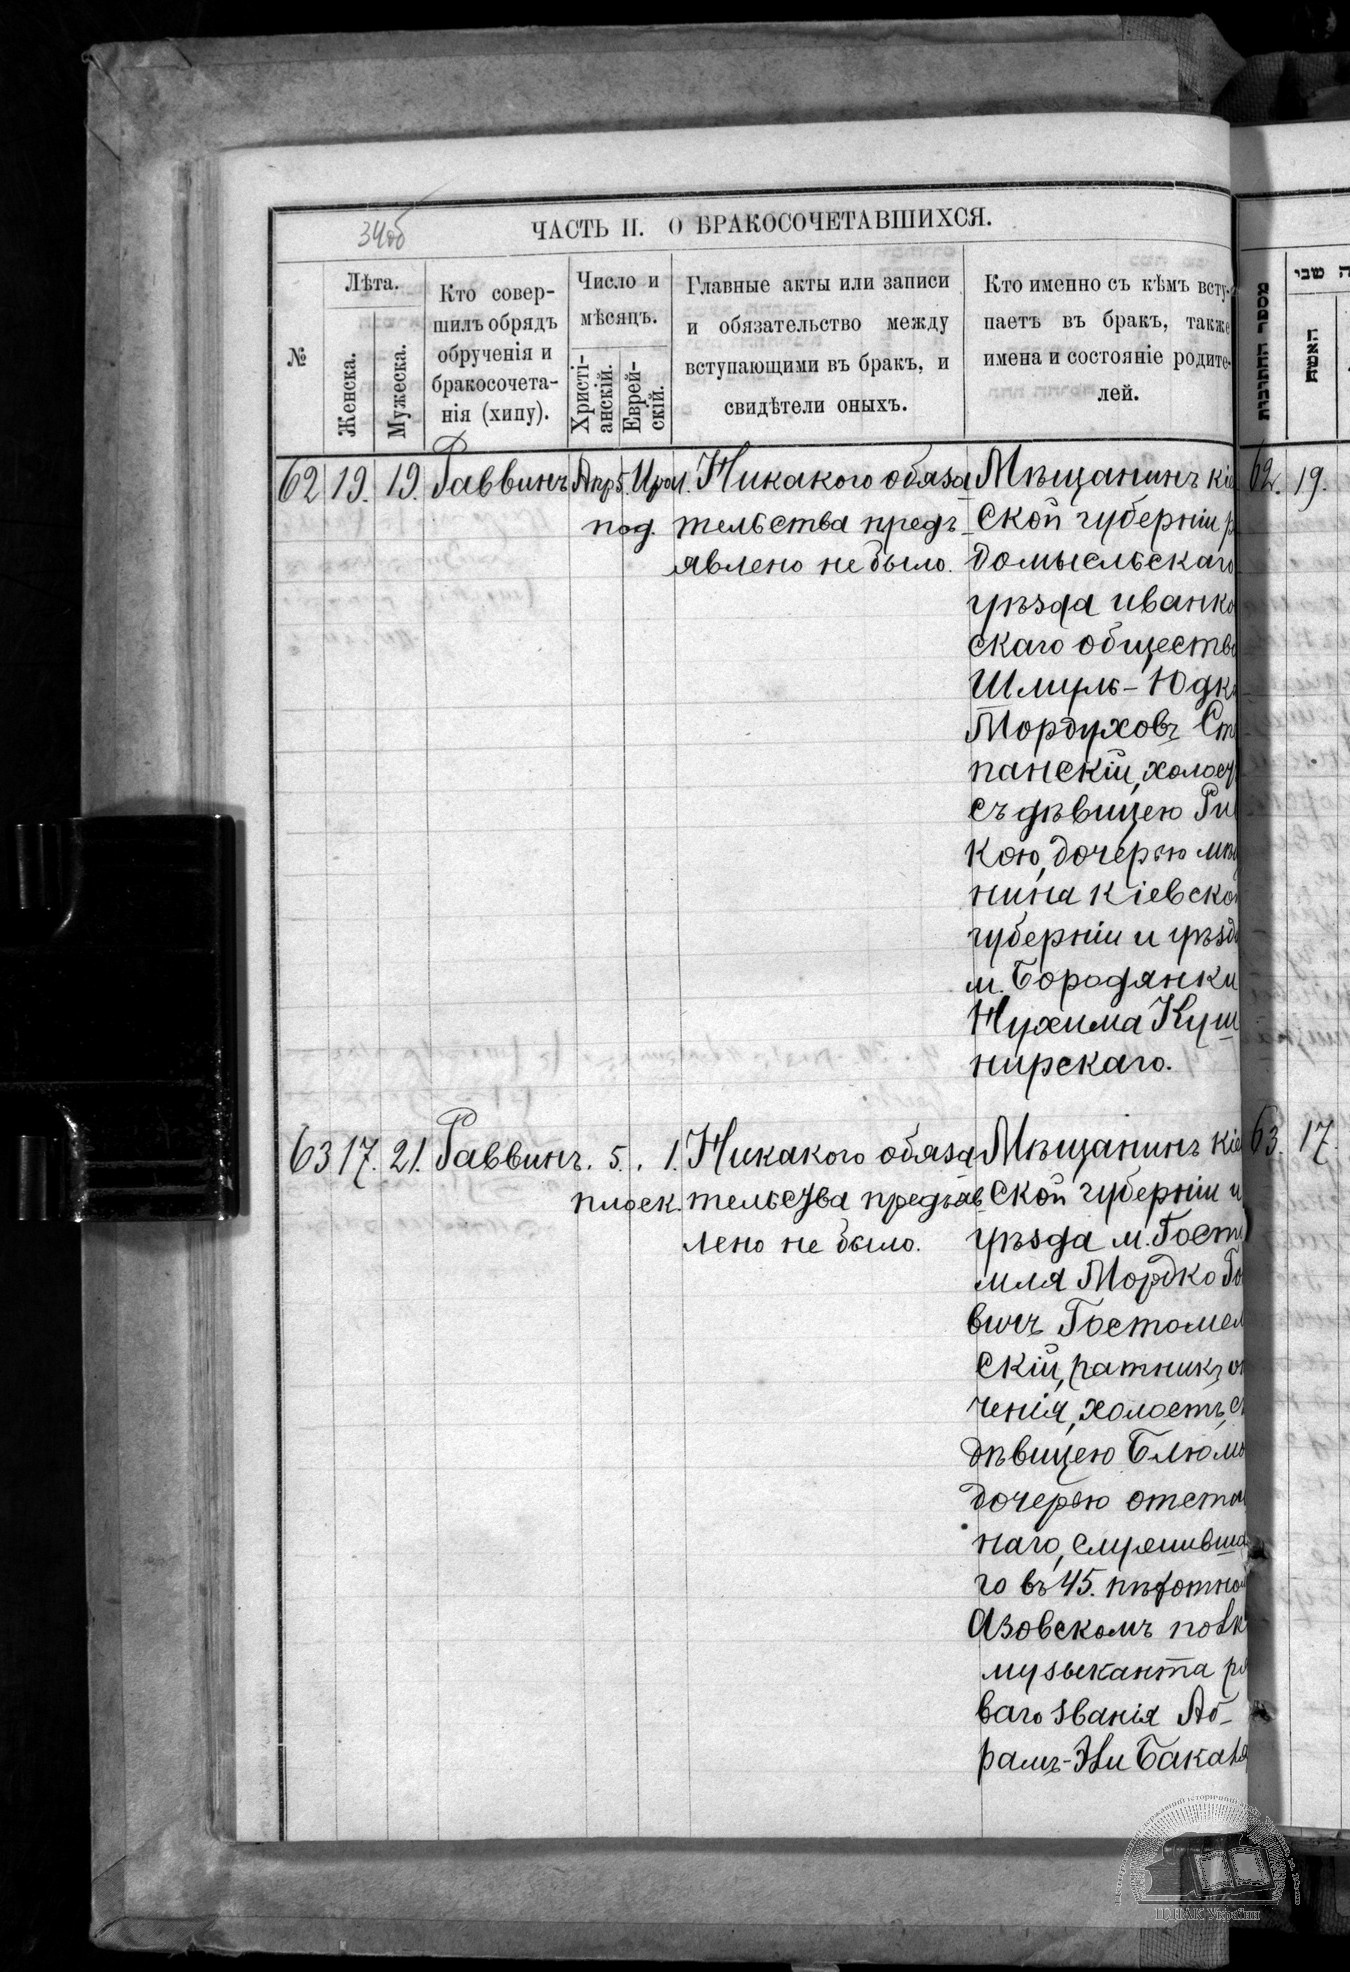 34об
ЧАСТЬ II. О БРАКОСОЧЕТАВШИХСЯ.
№
Лѣта.
Женска.
Мужеска.
Кто совер-
шилъ обрядъ
обрученія и
бракосочета-
нія (хипу).
Число и
мѣсяцъ.
Христі-
анскій.
Еврей-
скій.
Главные акты или записи
и обязательство между
вступающими въ бракъ, и
свидѣтели оныхъ.
Кто именно съ кѣмъ всту-
паетъ въ бракъ, также
имена и состояніе родите-
лей.
מספר החתונות
האשה
שבי
62 19. 19. Раввинъ Апр 5.
под.
Никакого обяза
тельства предъ-
явлено не было.
Мѣщанинъ Кіе
ской губерніи
домысльскаго
уѣзда иванко
скаго обществ
Шмуль-Юдк
Мордуховъ Ст
панскій, холост
съ дѣвицею Ри
кою, дочерью мѣщ
нина Кіевско
губерніи и уѣзд
м. Бородянки
Нухима Куш
нирскаго.
63 17. 21. Раввинъ. 5. 1.
плоск.
Никакого обяза
тельства предъяв
лено не было.
Мѣщанинъ Кіе
ской губерніи и
уѣзда м. Гост
мля Мордко Го
вичъ Гостомел
скій, ратникъ оп
ченія, холостъ, с
дѣвицею Блюмо
дочерью отста
наго, служивша
го въ 45. пѣхотно
Азовскомъ полк
музыканта ря
ваго званія Аб-
рамъ-Эли Бакаля
62. 19.
63. 17.
ЦДІАК України